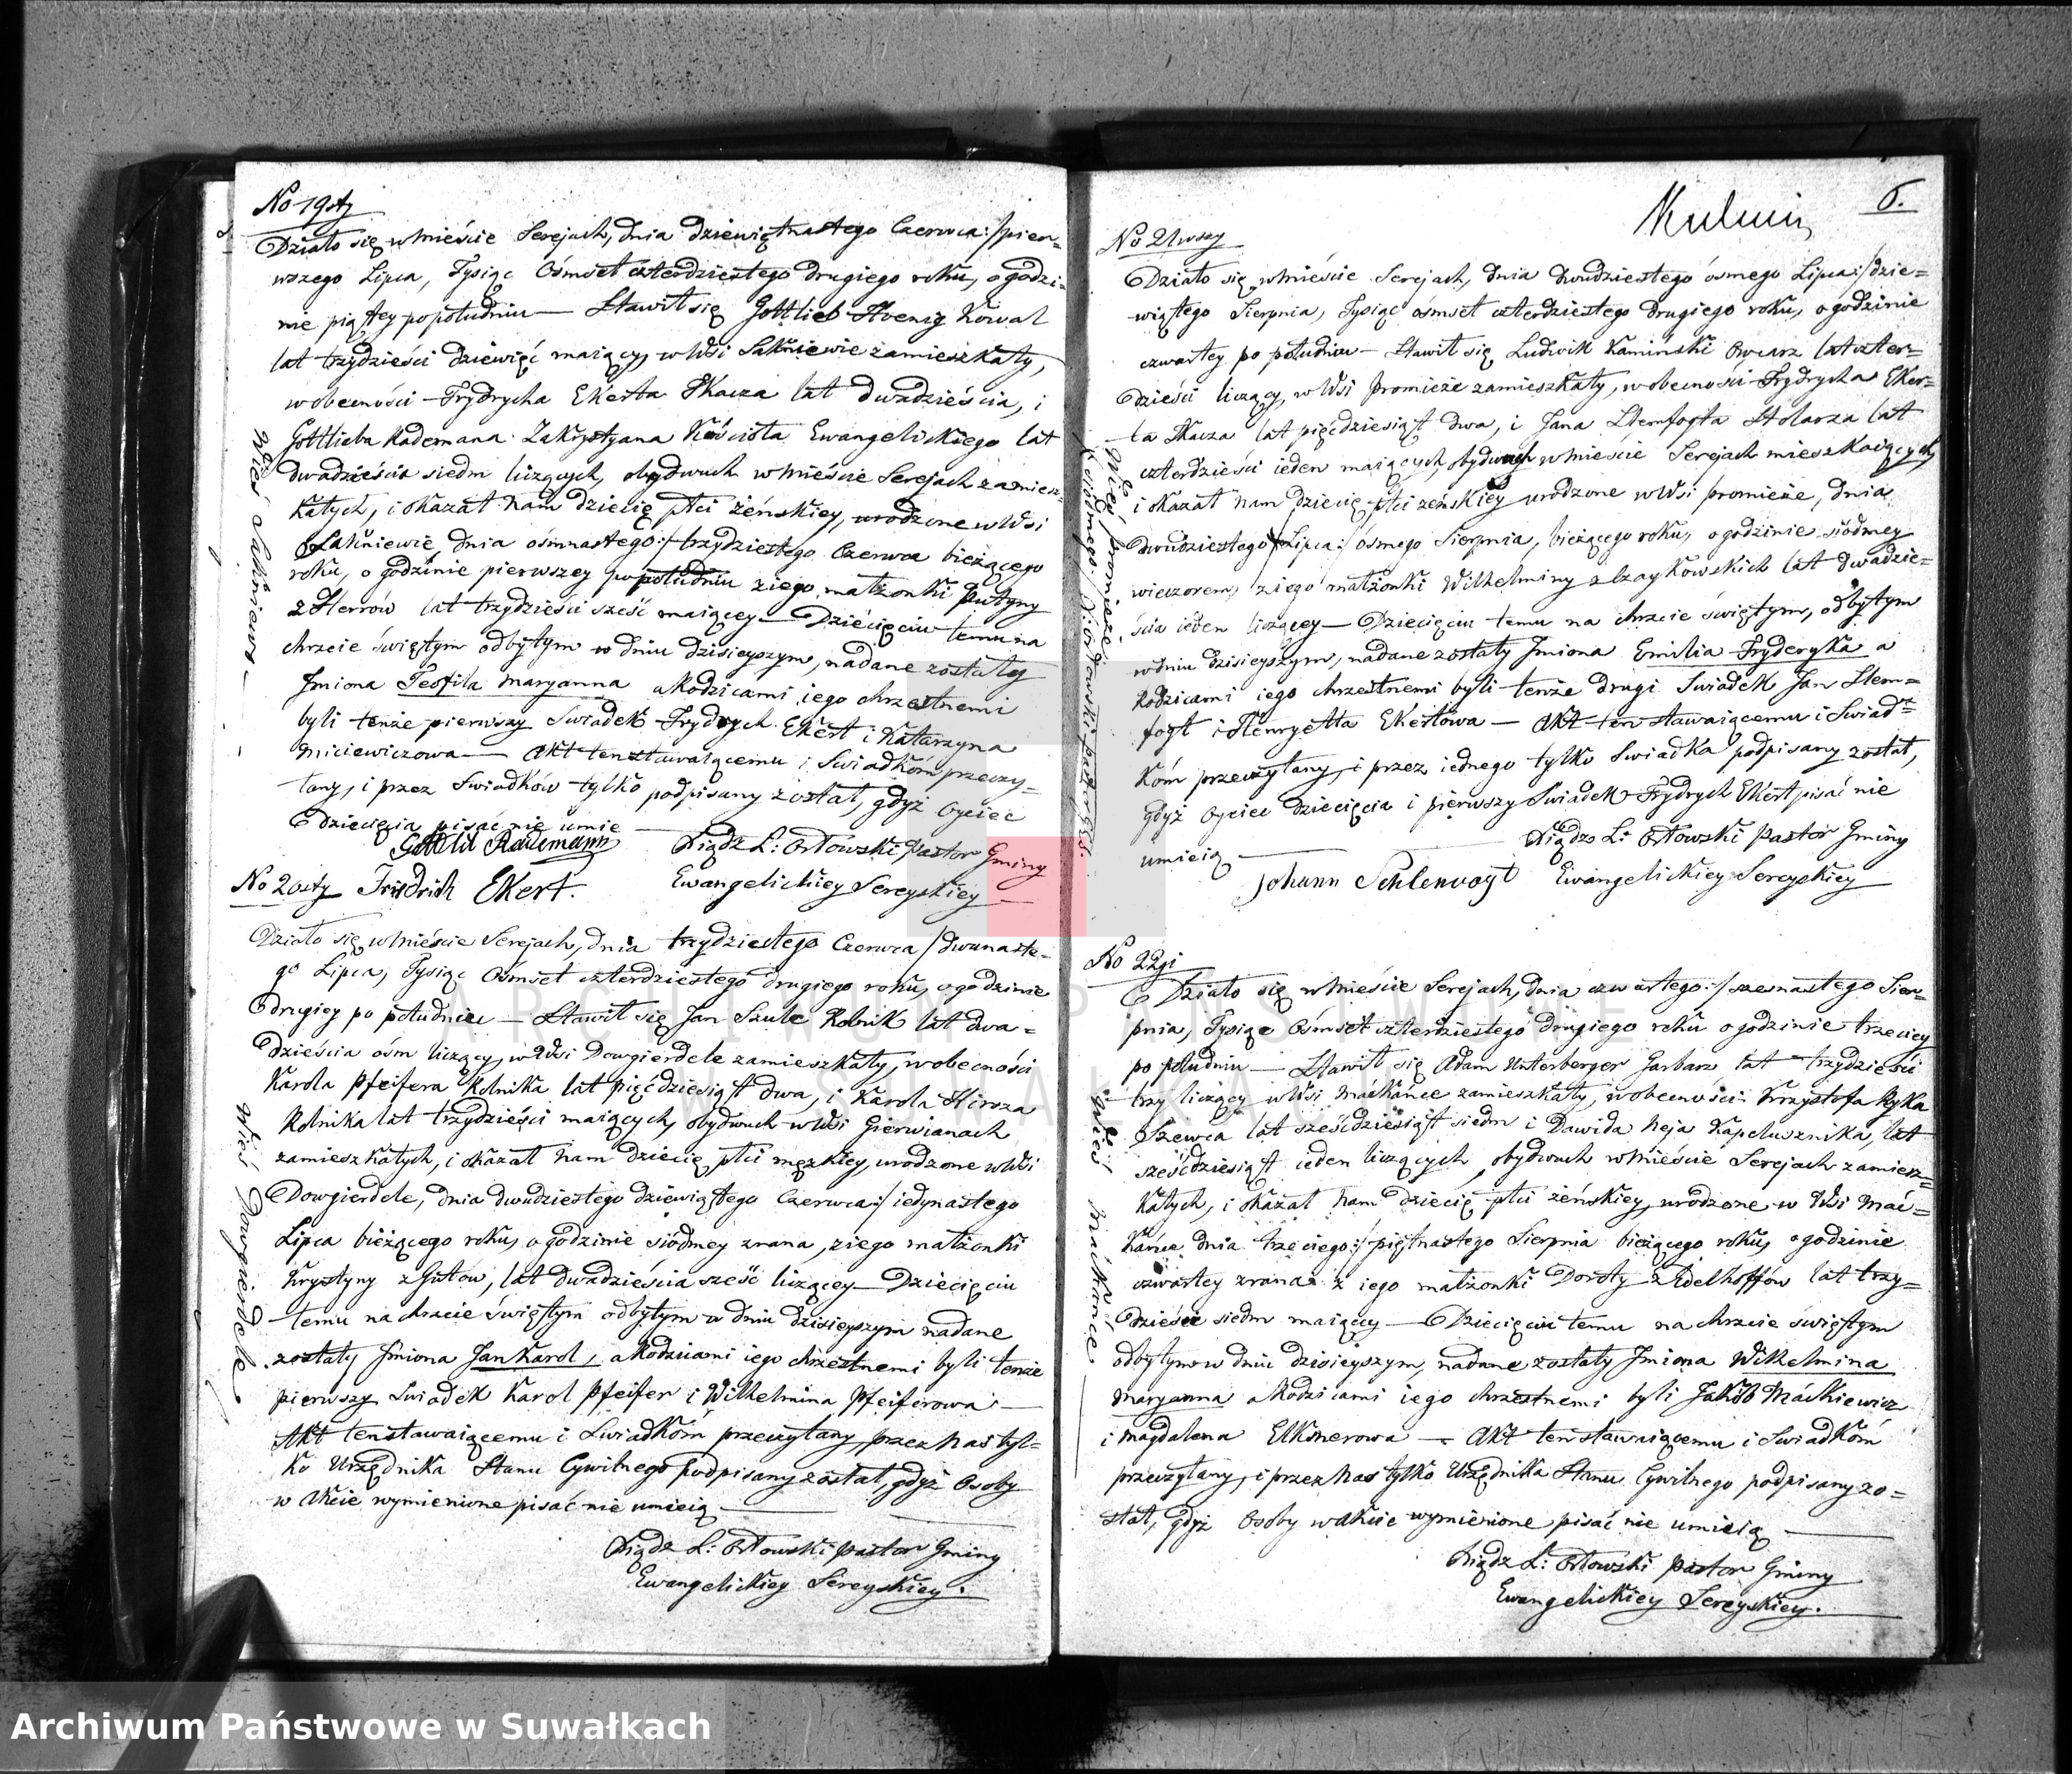 No 19sty
Działo się w Mieście Serejach, dnia dziewiętnastego Czerwca:/pier-
wszego Lipca, Tysiąc Ośmset czterdziestego drugiego roku, o godzi-
nie piątey popołudniu — Stawił się Gottlieb Hoenig Kowal
lat trzydzieści dziewięć maiący, w Wsi Łakniewie zamieszkały,
w obecności Frydrycha Ekerta Tkacza lat dwadzieścia, i
Gottlieba Rademana Zakrystyana Kościoła Ewangelickiego lat
dwadzieścia siedm liczących, obydwuch w Mieście Serejach zamiesz-
kałych, i okazał Nam dziecię płci żeńskiey, urodzone w Wsi
Łakniewie, dnia ośmnastego:/trzydziestego Czerwca bieżącego
roku, o godzinie pierwszey po południu z iego małżonki
z Herrów lat trzydzieści sześć maiącey — Dziecięciu temu na
chrzcie świętym odbytym w dniu dzisieyszym, nadane zostały
Jmiona Teofila Maryanna a Rodzicami iego chrzestnemi
byli tenże pierwszy Swiadek Frydrych Ekert i Katarzyna
Miciewiczowa — Akt ten stawaiącemu i Swiadkóm przeczy-
tany, i przez Swiadków tylko podpisany został, gdyż Oyciec
Dziecięcia pisać nie umie
Gottlib Rademann Xiądz L: Orłowski Pastor Gminy
Friedrich Ekert. Ewangelickiey Sereyskiey
Wieś Łakniewo
No 20sty
Działo się w Mieście Serejach, dnia trzydziestego Czerwca/dwunaste-
go Lipca, Tysiąc Ośmset czterdziestego drugiego roku, o godzinie
drugiey po południu — Stawił się Jan Szulc Rolnik lat dwa=
dzieścia ośm liczący, w Wsi Dowgierdele zamieszkały, w obecności
Karola Pfeifera Rolnika lat pięćdziesiąt dwa, i Karola Hirsza
Rolnika lat trzydzieści maiących, obydwuch w Wsi Gierwianach
zamieszkałych, i okazał Nam dziecię płci męzkiey, urodzone w Wsi
Dowgierdele, dnia dwudziestego dziewiątego Czerwca:/iedynastego
Lipca bieżącego roku, o godzinie siódmey zrana, z iego małżonki
Krystyny z Gustów, lat dwadzieścia sześć liczącey — Dziecięciu
temu na chrzcie świętym odbytym w dniu dzisieyszym nadane
zostały Jmiona Jan Karol, a Rodzicami iego chrzestnemi byli tenże
pierwszy Swiadek Karol Pfeifer i Wilhelmina Pfeiferowa —
Akt ten stawaiącemu i Swiadkóm przeczytany przez Nas tyl=
ko Urzędnika Stanu Cywilnego podpisany został, gdyż Osoby
w Akcie wymienione pisać nie umieią
Xiądz L: Orłowski Pastor Gminy
Ewangelickiey Sereyskiey.
Wieś Dowgierdele
6.
No 21wszy
Działo się w Mieście Serejach, dnia dwudziestego ósmego Lipca:/dzie=
wiątego Sierpnia, Tysiąc ośmset czterdziestego drugiego roku, o godzinie
czwartey po południu — Stawił się Ludwik Kamiński Owczarz lat czter=
dzieści liczący, w Wsi Promieże zamieszkały, w obecności Frydrycha Eker=
ta Tkacza lat pięćdziesiąt dwa, i Jana Sternfogta Stolarza lat
czterdzieści ieden maiących, obydwuch w Mieście Serejach mieszkaiących,
i okazał Nam dziecię płci żeńskiey urodzone w Wsi Promieże, dnia
dwudziestego Lipca:/ósmego Sierpnia, bieżącego roku, o godzinie siódmey
wieczorem, z iego małżonki Wilhelminy z Czaykowskich lat dwadzie=
ścia ieden liczącey — Dziecięciu temu na chrzcie świętym, odbytym
w dniu dzisieyszym, nadane zostały Jmiona Emilia Fryderyka a
Rodzicami iego chrzestnemi byli tenże drugi Swiadek Jan Stern=
fogt i Henryetta Ekertowa — Akt ten stawaiącemu i Swiad=
kóm przeczytany, i przez iednego tylko Swiadka podpisany został,
gdyż Oyciec dziecięcia i pierwszy Swiadek Frydrych Ekert pisać nie
umieią Xiądz L: Orłowski Pastor Gminy
Johann Schlenvogt Ewangelickiey Sereyskiey
Wieś Promieże
No 22gi
Działo się w Mieście Serejach, dnia czwartego:/szesnastego Sier=
pnia, Tysiąc Ośmset czterdziestego drugiego roku o godzinie trzeciey
po południu — Stawił się Adam Unterberger Garbarz lat trzydzieści
trzy liczący w Wsi Maćkańce zamieszkały, w obecności Krzysztofa Ryka
Szewca lat sześćdziesiąt siedm i Dawida Neja Kapelusznika, lat
sześćdziesiąt ieden liczących, obydwuch w Mieście Serejach zamiesz=
kałych, i okazał Nam dziecię płci żeńskiey, urodzone w Wsi Mać=
kańce dnia trzeciego:/piętnastego Sierpnia bieżącego roku, o godzinie
czwartey zrana z iego małżonki Doroty z Edelhoffów lat trzy=
dzieści siedm maiącey — Dziecięciu temu na chrzcie świętym
odbytym w dniu dzisieyszym, nadane zostały Jmiona Wilhelmina
Maryanna a Rodzicami iego chrzestnemi byli Jakób Maćkiewicz
i Magdalena Elksnerowa — Akt ten stawaiącemu i Swiadkóm
przeczytany, i przez Nas tylko Urzędnika Stanu Cywilnego podpisany zo=
stał, gdyż Osoby w Akcie wymienione pisać nie umieią
Xiądz L: Orłowski Pastor Gminy
Ewangelickiey Sereyskiey.
Wieś Maćkańce
ARCHIWUM PAŃSTWOWE
W SUWAŁKACH
Archiwum Państwowe w Suwałkach